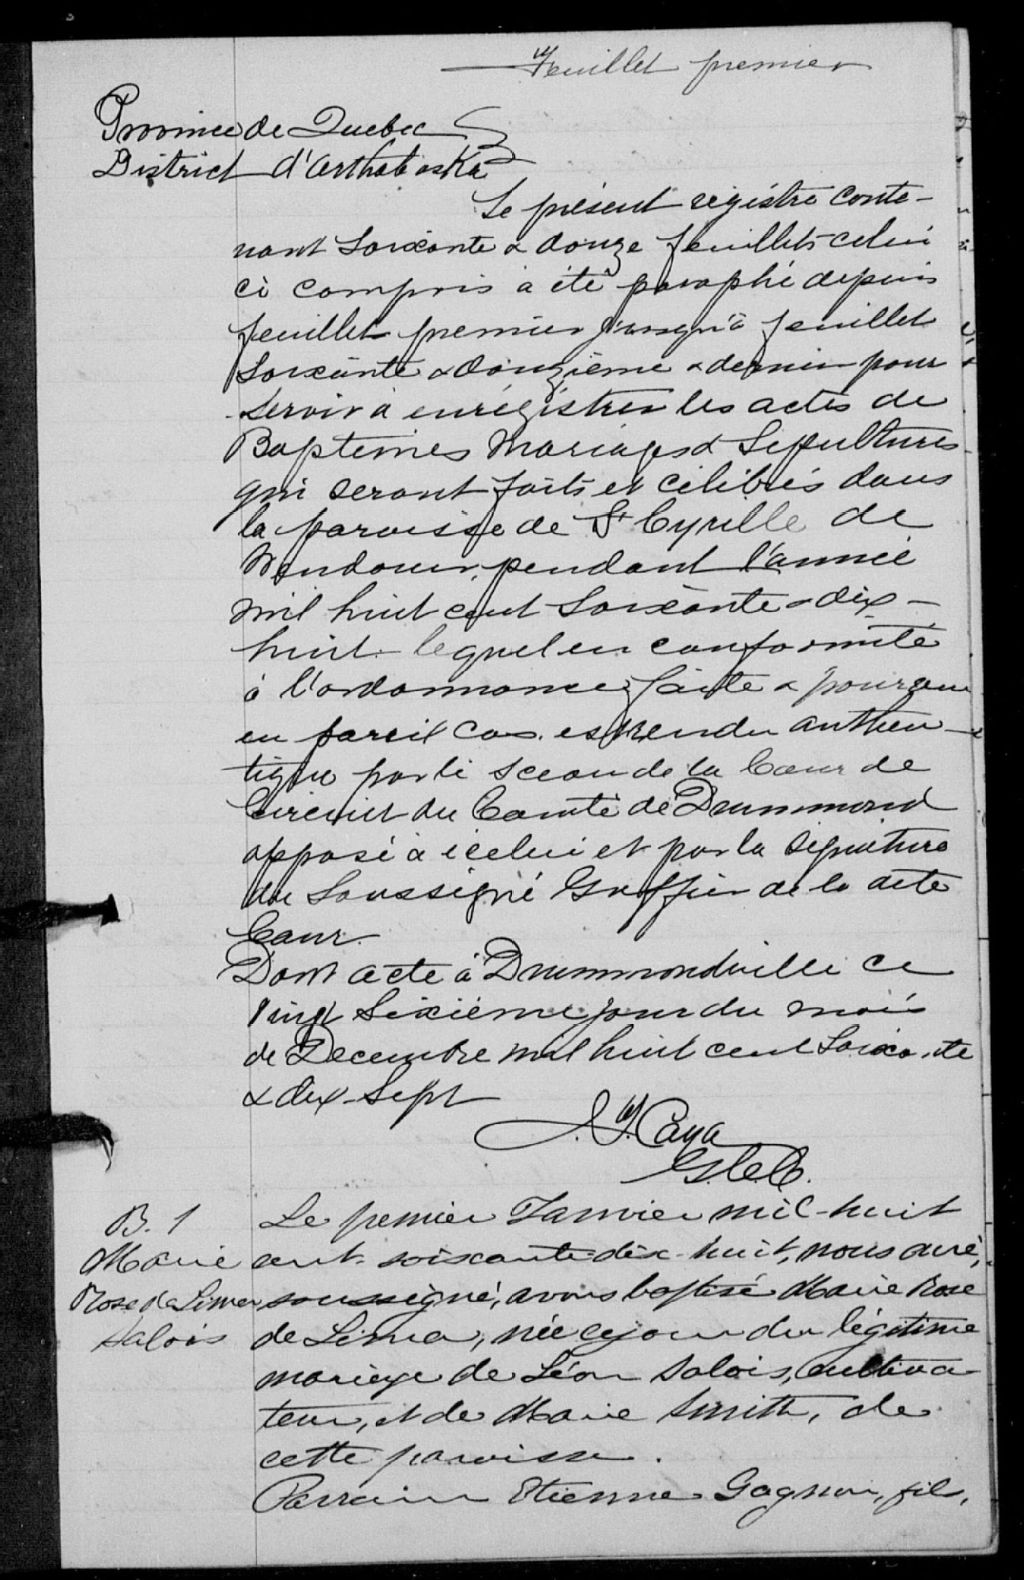 Feuillet premier
Province de Quebec
District d'Arthabaska
Le présent régistre conte-
nant Soixante & douze feuillets celui
ci compris a été paraphé depuis
feuillet premier jusqu'à feuillet
Soixante & douzième & dernier pour
Servir à enrégistrer les actes de
Baptemes Mariages & Sepultures
qui seront faits et célébrés dans
la paroisse de St Cyrille de
Wendover, pendant l'année
mil huit cent Soixante & dix-
huit lequel en conformité
à l'ordonnance faite & pourvue
en pareil cas est rendu authen-
tique par le sceau de la Cour de
Circuit du Comté de Drummond
apposé à icelui et par la Signature
du Soussigné Greffier de la dite
Cour.
Dont acte à Drummondville ce
Vingt Sixième jour du mois
de Decembre mil huit cent Soixante
& dix-Sept
Caya
G.C.C.
B. 1
Marie
Rose de Lima
Salois
Le premier Janvier mil-huit
cent-soixante-dix-huit, nous curé,
soussigné, avons baptisé Marie Rose
de Lima, née ce jour du légitime
mariage de Léon Salois, cultiva-
teur, et de Marie Smith, de
cette paroisse.
Parrain Etienne Gagnon, fils,